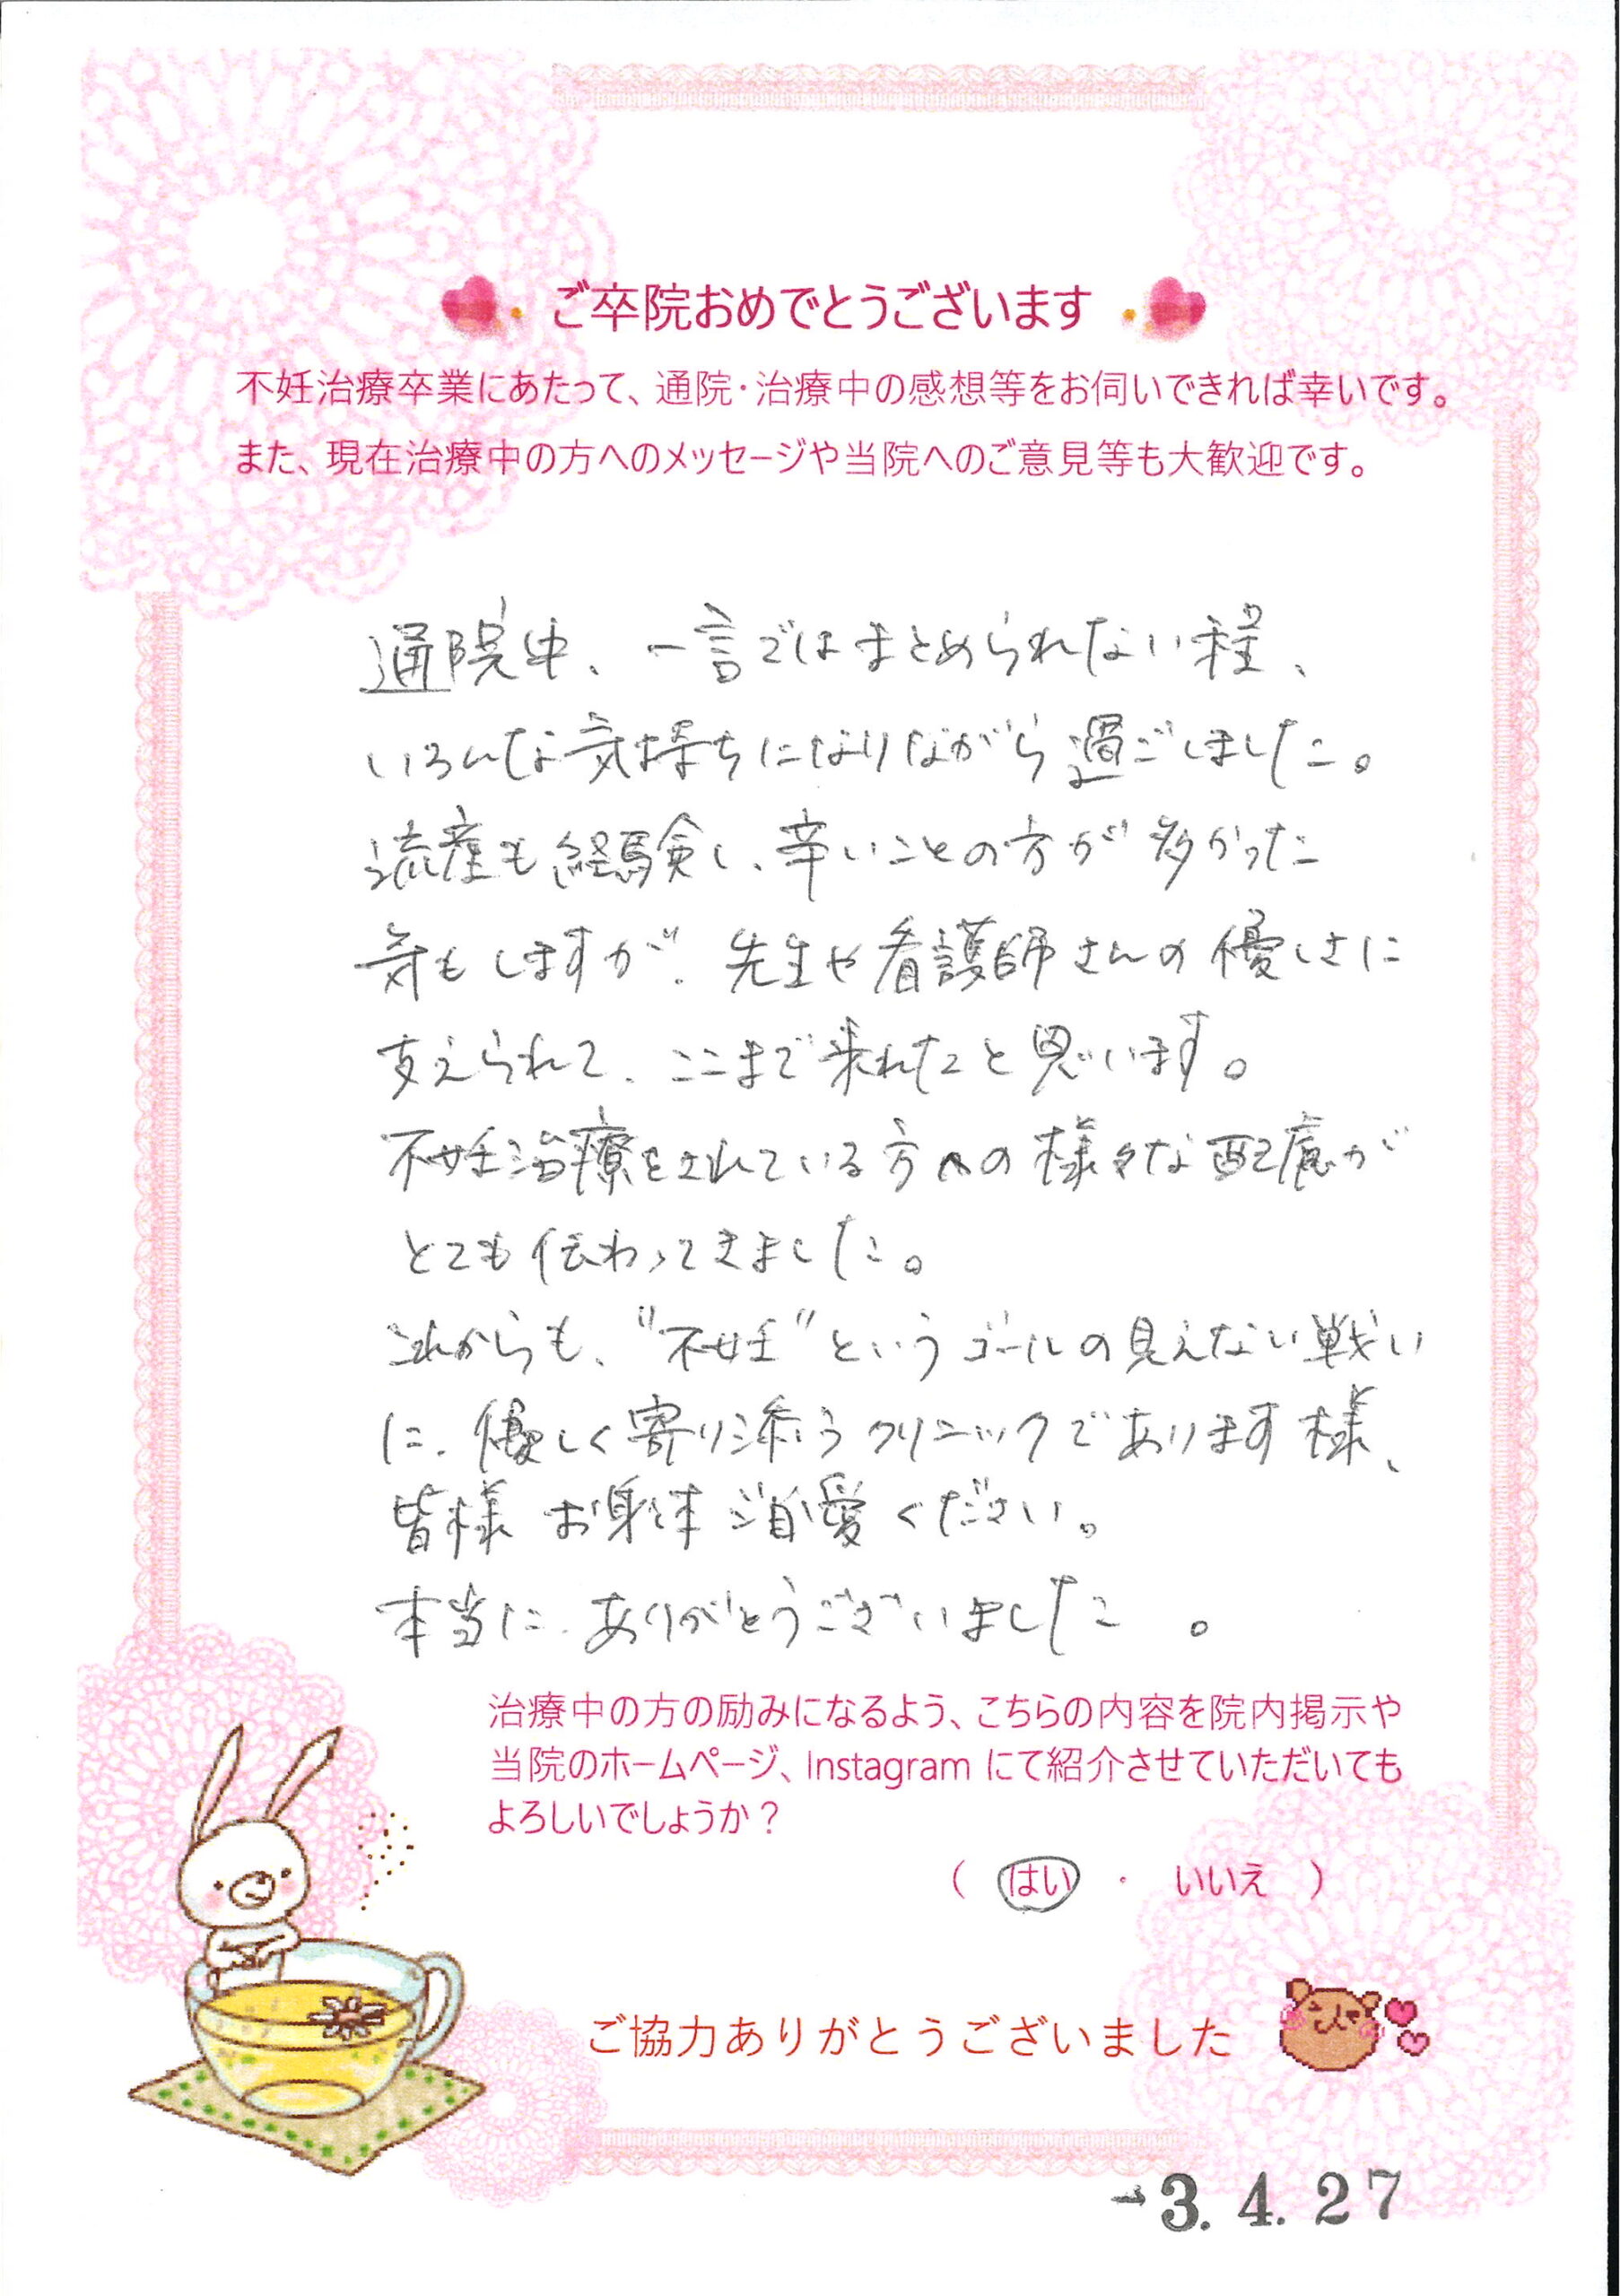 ご卒院おめでとうございます
不妊治療卒業にあたって、通院・治療中の感想等をお伺いできれば幸いです。
また、現在治療中の方へのメッセージや当院へのご意見等も大歓迎です。
通院中、一言ではまとめられない程、
いろんな気持ちになりながら過ごしました。
流産も経験し、辛いことの方が多かった
気もしますが、先生や看護師さんの優しさに
支えられて、ここまで来れたと思います。
不妊治療をされている方への様々な配慮が
とても伝わってきました。
これからも、"不妊"というゴールの見えない戦い
に、優しく寄り添うクリニックであります様、
皆様 お身体ご自愛ください。
本当に、ありがとうございました。
治療中の方の励みになるよう、こちらの内容を院内掲示や
当院のホームページ、Instagram にて紹介させていただいても
よろしいでしょうか？
（ はい ・ いいえ ）
ご協力ありがとうございました
3. 4. 27